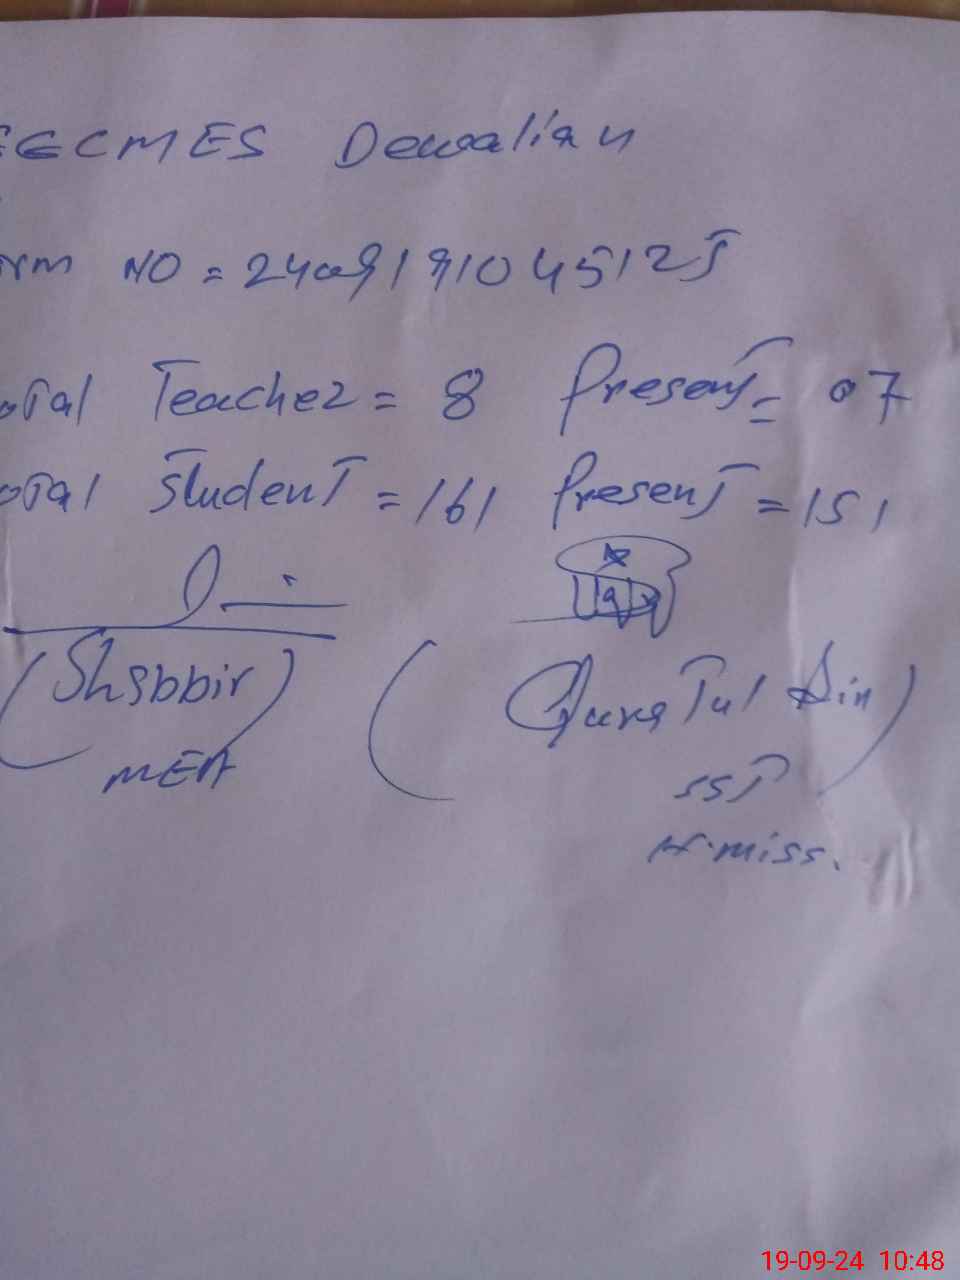 GCMES Dewalian
NO = 240919104512
Total Teacher = 8 Present = 07
Total Student = 161 Present = 151
(Shabbir) (Quratul Ain)
MEA SST
H.miss.
19-09-24 10:48